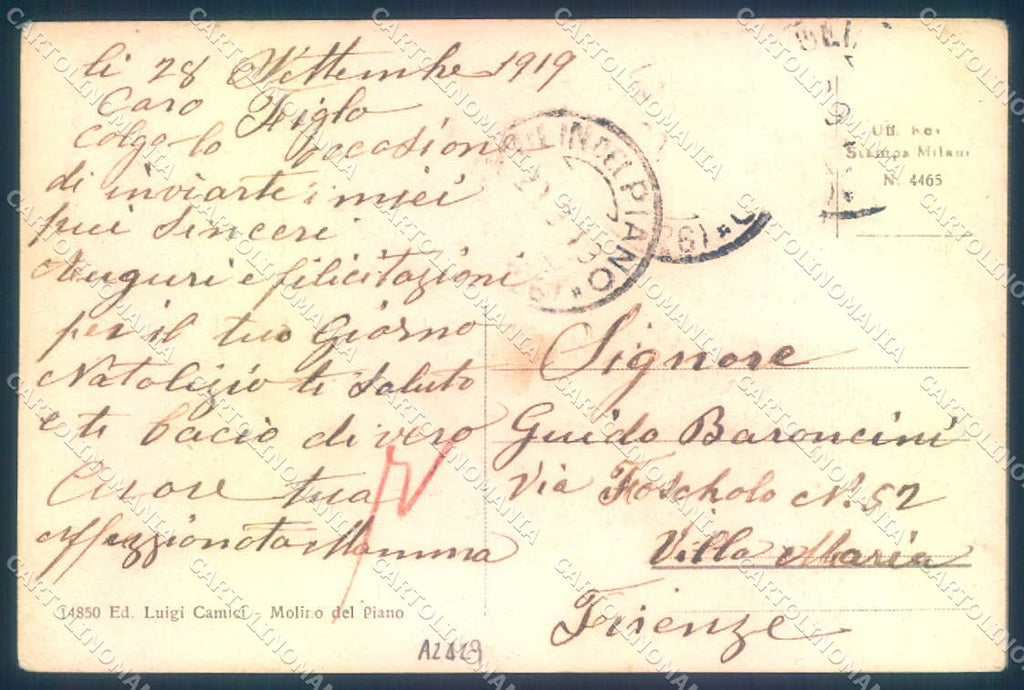 li 28 Settembre 1919
Caro Figlo
colgo lo occasion
di inviarte i miei
piui sinceri
Auguri e filicitazioni
per il tuo Giorno
Natalizio ti saluto
e ti bacio di vero
Cuore tua
affezzionata Mamma
14850 Ed. Luigi Camici - Molino del Piano
A2429
MOLINO DEL PIANO
Uff. Rev
Stampa Milano
N. 4465
Signore
Guido Baroncini
Via Foscholo N. 52
Villa Maria
Firenze
CARTOLINOMANIA